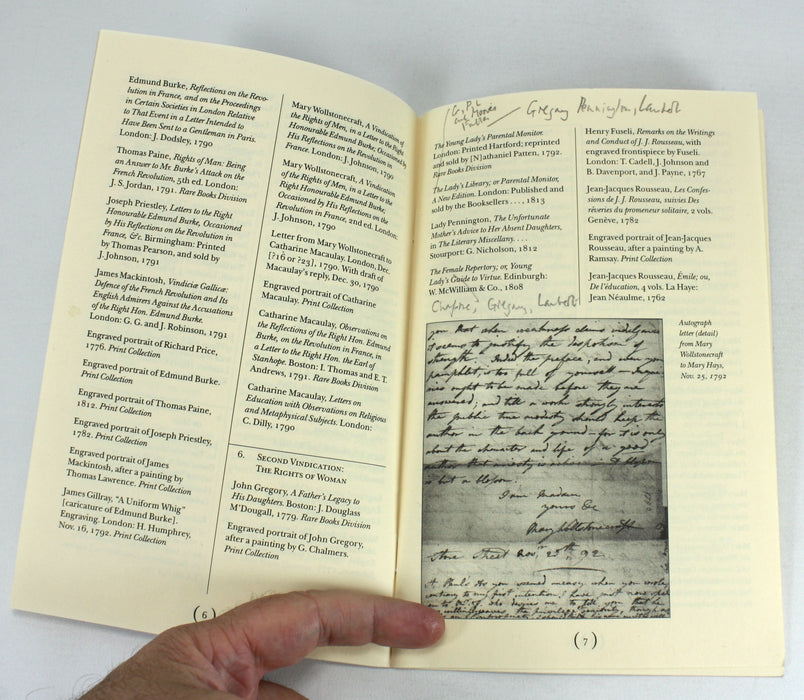 Edmund Burke, Reflections on the Revo-
lution in France, and on the Proceedings
in Certain Societies in London Relative
to That Event in a Letter Intended to
Have Been Sent to a Gentleman in Paris.
London: J. Dodsley, 1790
Thomas Paine, Rights of Man: Being
an Answer to Mr. Burke's Attack on the
French Revolution, 5th ed. London:
J. S. Jordan, 1791. Rare Books Division
Joseph Priestley, Letters to the Right
Honourable Edmund Burke, Occasioned
by His Reflections on the Revolution in
France, &c. Birmingham: Printed
by Thomas Pearson, and sold by
J. Johnson, 1791
James Mackintosh, Vindiciæ Gallicæ:
Defence of the French Revolution and Its
English Admirers Against the Accusations
of the Right Hon. Edmund Burke.
London: G. G. and J. Robinson, 1791
Engraved portrait of Richard Price,
1776. Print Collection
Engraved portrait of Edmund Burke.
Print Collection
Engraved portrait of Thomas Paine,
1812. Print Collection
Engraved portrait of Joseph Priestley,
1782. Print Collection
Engraved portrait of James
Mackintosh, after a painting by
Thomas Lawrence. Print Collection
James Gillray, "A Uniform Whig"
[caricature of Edmund Burke].
Engraving. London: H. Humphrey,
Nov. 16, 1792. Print Collection
Mary Wollstonecraft, A Vindication of
the Rights of Men, in a Letter to the Right
Honourable Edmund Burke, Occasioned by
His Reflections on the Revolution in
France. London: J. Johnson, 1790
Mary Wollstonecraft, A Vindication
of the Rights of Men, in a Letter to the
Right Honourable Edmund Burke,
Occasioned by His Reflections on the
Revolution in France, 2nd ed. London:
J. Johnson, 1790
Letter from Mary Wollstonecraft to
Catharine Macaulay. London, Dec.
[?16 or ?23], 1790. With draft of
Macaulay's reply, Dec. 30, 1790
Engraved portrait of Catharine
Macaulay. Print Collection
Catharine Macaulay, Observations on
the Reflections of the Right Hon. Edmund
Burke, on the Revolution in France, in
a Letter to the Right Hon. the Earl of
Stanhope. Boston: I. Thomas and E. T.
Andrews, 1791. Rare Books Division
Catharine Macaulay, Letters on
Education with Observations on Religious
and Metaphysical Subjects. London:
C. Dilly, 1790
6. Second Vindication:
The Rights of Woman
John Gregory, A Father's Legacy to
His Daughters. Boston: J. Douglass
M'Dougall, 1779. Rare Books Division
Engraved portrait of John Gregory,
after a painting by G. Chalmers.
Print Collection
(6
G, P, L
Moore
Gregory Pennington, Lambert
The Young Lady's Parental Monitor.
London: Printed Hartford; reprinted
and sold by [N]athaniel Patten, 1792.
Rare Books Division
The Lady's Library; or Parental Monitor,
A New Edition. London: Published and
sold by the Booksellers . . . , 1813
Lady Pennington, The Unfortunate
Mother's Advice to Her Absent Daughters,
in The Literary Miscellany. . . .
Stourport: G. Nicholson, 1812
The Female Repertory; or, Young
Lady's Guide to Virtue. Edinburgh:
W. McWilliam & Co., 1808
Chapone, Gregory, Lambert
Henry Fuseli, Remarks on the Writings
and Conduct of J. J. Rousseau, with
engraved frontispiece by Fuseli.
London: T. Cadell, J. Johnson and
B. Davenport, and J. Payne, 1767
Jean-Jacques Rousseau, Les Confes-
sions de J. J. Rousseau, suivies Des
rêveries du promeneur solitaire, 2 vols.
Genève, 1782
Engraved portrait of Jean-Jacques
Rousseau, after a painting by A.
Ramsay. Print Collection
Jean-Jacques Rousseau, Émile; ou,
De l'éducation, 4 vols. La Haye:
Jean Néaulme, 1762
Autograph
letter (detail)
from Mary
Wollstonecraft
to Mary Hays,
Nov. 25, 1792
you that when weakness claims indulgence
it seems to justify the despotism of
strength. Indeed the preface, and even your
pamphlet, is too full of yourself — Inquir-
ies ought to be made before they are
answered; and till a work strongly interests
the public true modesty should keep the
author in the back ground — for it is only
about the character and life of a good
author that curiosity is
is but a blossom.
I am Madam
yours &c
Mary Wollstonecraft
Store Street Novr 25th 92
(7)